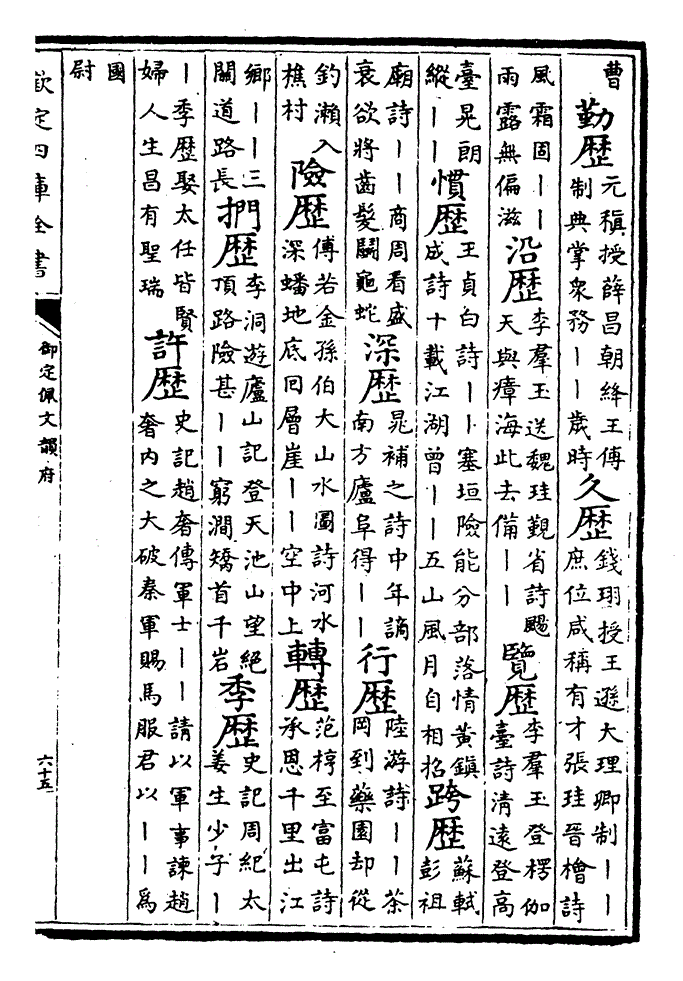 曹勤歷元稹授薛昌朝絳王傅制典掌衆務丨丨歲時久歷錢珝授王遜大理卿制丨丨庶位咸稱有才張珪晉檜詩
風霜固丨丨雨露無偏滋沿歷李羣玉送魏珪覲省詩颺天與瘴海此去備丨丨覽歷李羣玉登楞伽臺詩清遠登高
臺晃朗縱丨丨慣歷王貞白詩丨丨塞垣險能分部落情黃鎮成詩十載江湖曾丨丨五山風月自相招跨歷蘇軾彭祖
廟詩丨丨商周看盛衰欲將齒髮鬭龜蛇深歷晁補之詩中年謫南方廬阜得丨丨行歷陸游詩丨丨茶岡到藥園却從
釣瀨入樵村險歷傅若金孫伯大山水圖詩河水深蟠地底回層崖丨丨空中上轉歷范梈至富屯詩承恩千里出江
鄉丨丨三關道路長捫歷李洞遊廬山記登天池山望絕頂路險甚丨丨窮澗矯首千岩季歷史記周紀太姜生少子丨
丨季歷娶太任皆賢婦人生昌有聖瑞許歷史記趙奢傳軍士丨丨請以軍事諫趙奢內之大破秦軍賜馬服君以丨丨爲
國尉
欽定四庫全書
御定佩文韻府
六十五